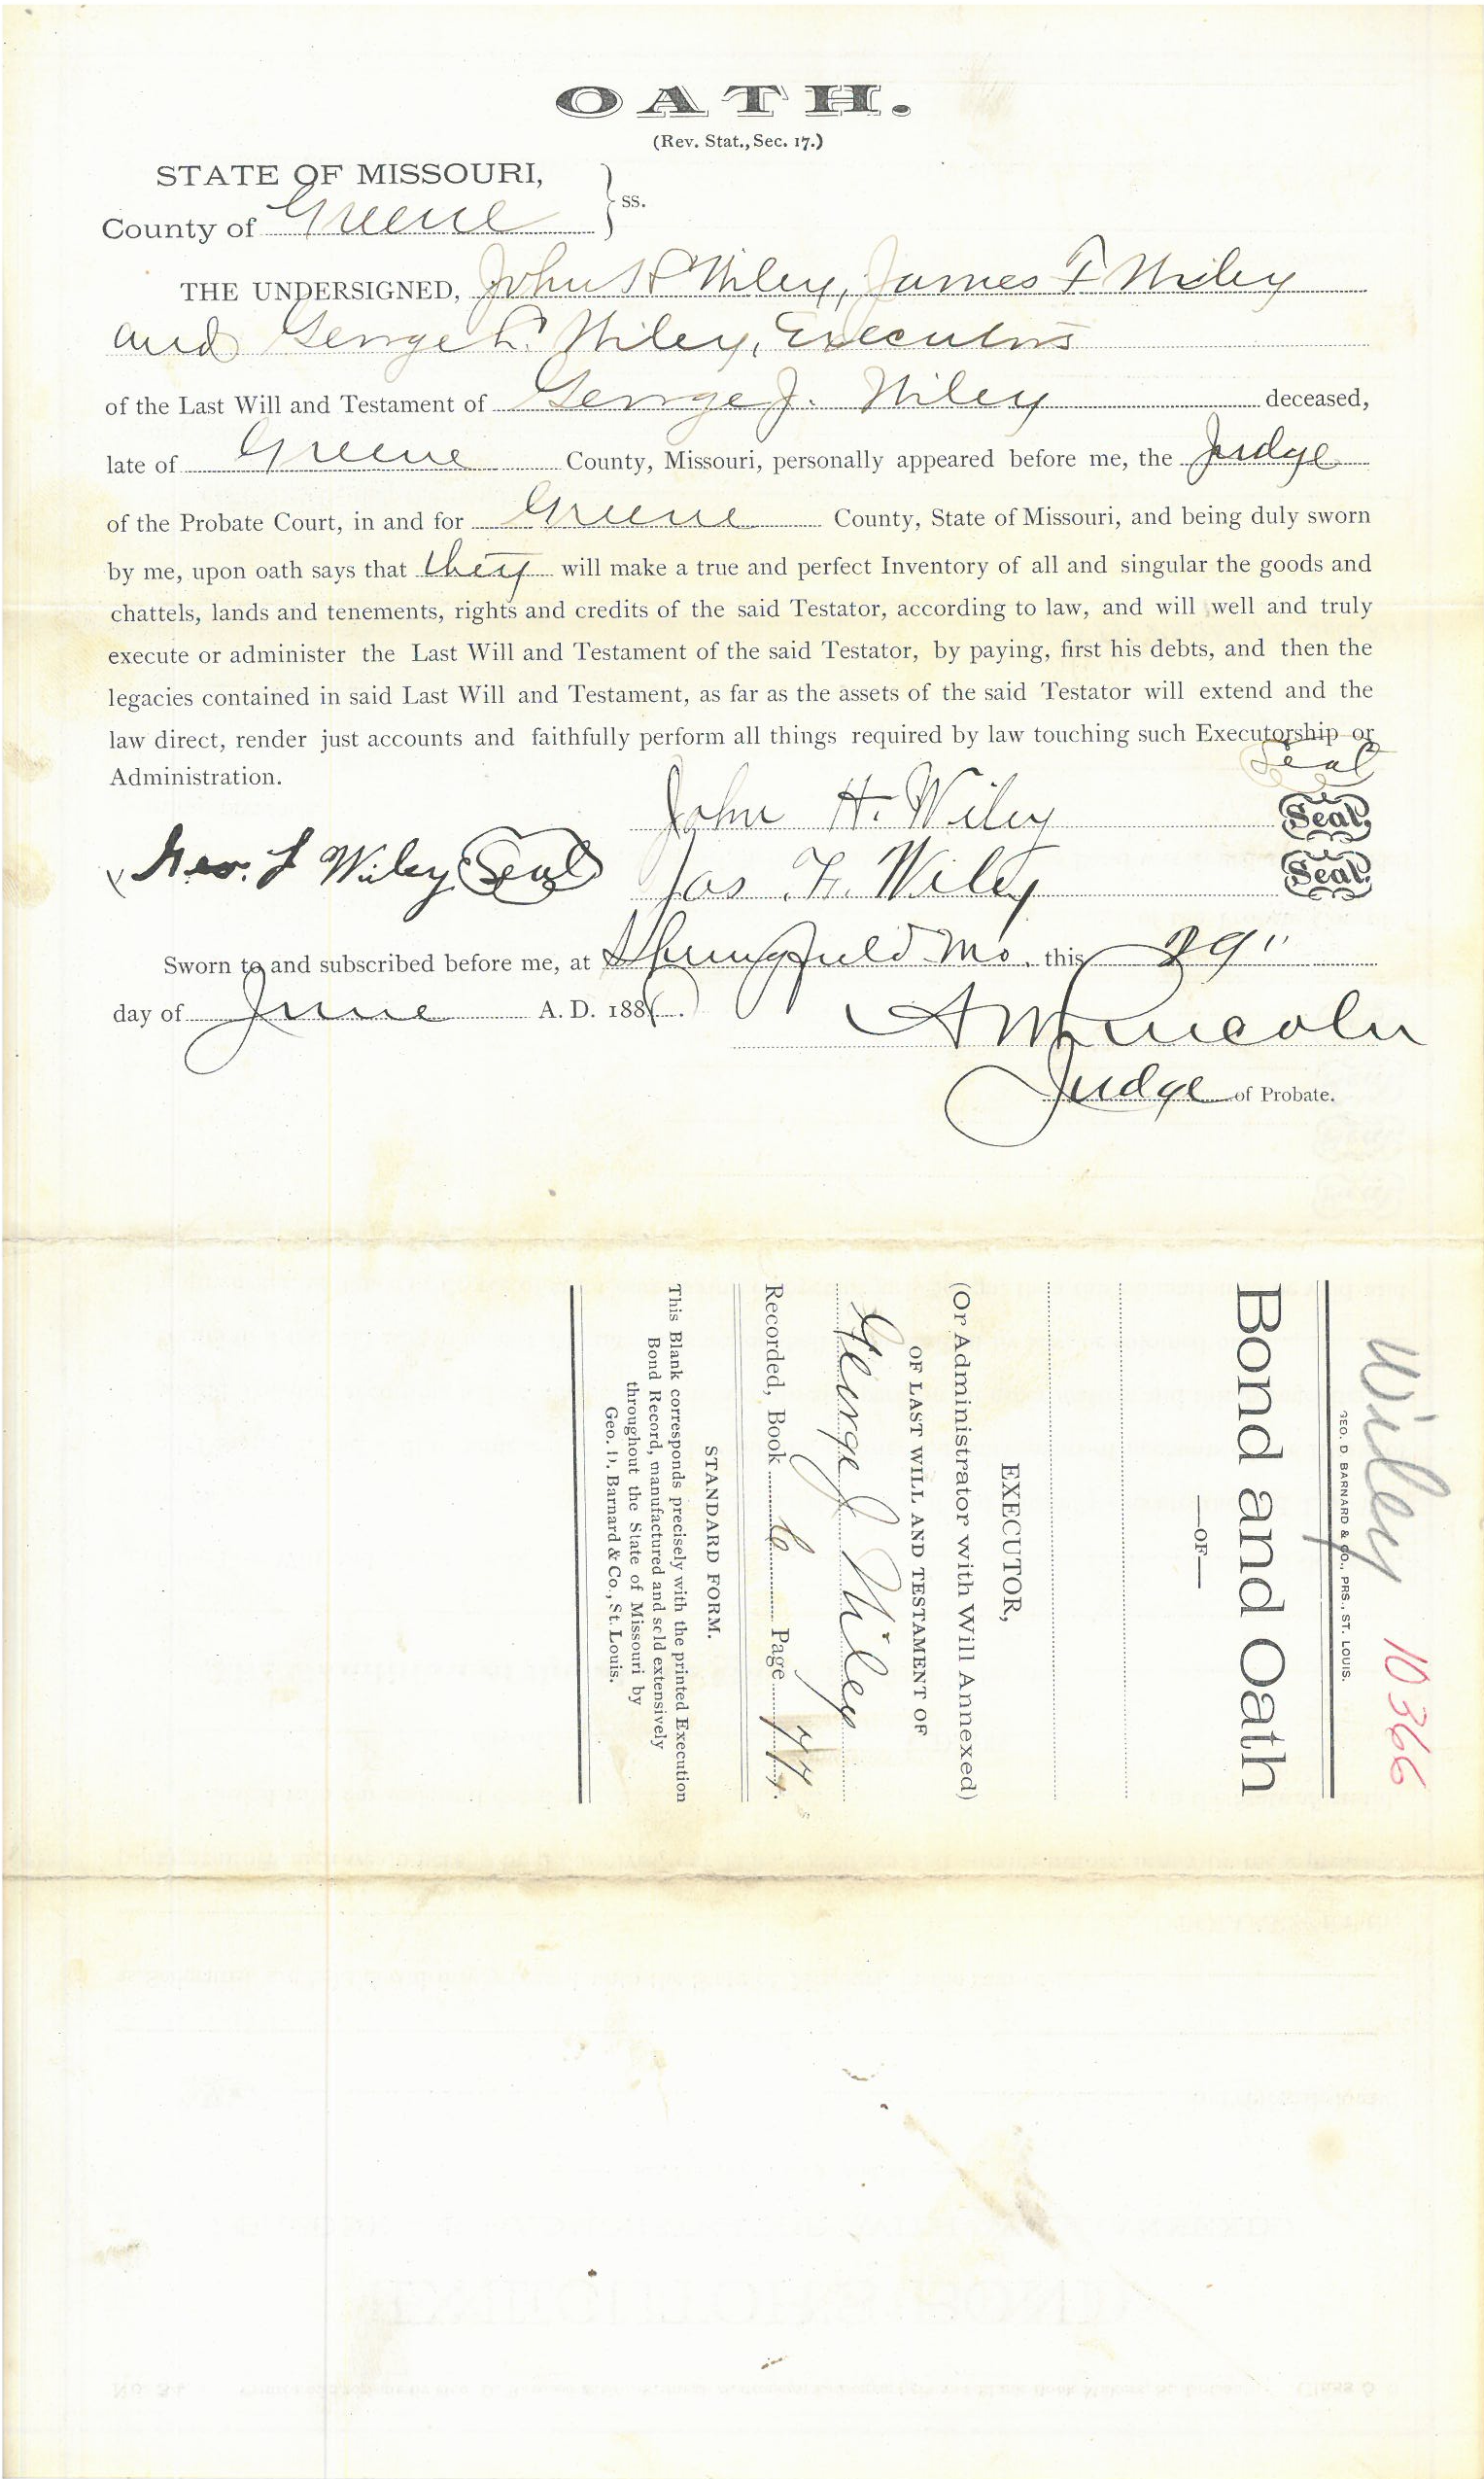 OATH.
(Rev. Stat., Sec. 17.)
STATE OF MISSOURI,
County of Greene } ss.
THE UNDERSIGNED, John H Wiley, James F Wiley
and George L. Wiley, Executors
of the Last Will and Testament of George J. Wiley deceased,
late of Greene County, Missouri, personally appeared before me, the Judge
of the Probate Court, in and for Greene County, State of Missouri, and being duly sworn
by me, upon oath says that they will make a true and perfect Inventory of all and singular the goods and
chattels, lands and tenements, rights and credits of the said Testator, according to law, and will well and truly
execute or administer the Last Will and Testament of the said Testator, by paying, first his debts, and then the
legacies contained in said Last Will and Testament, as far as the assets of the said Testator will extend and the
law direct, render just accounts and faithfully perform all things required by law touching such Executorship or
Administration.
Seal
John H. Wiley Seal.
Geo. L Wiley Seal
Jas F. Wiley Seal.
Sworn to and subscribed before me, at Springfield Mo. this 29"
day of June A. D. 188
A W Lincoln
Judge of Probate.
Wiley 10366
GEO. D BARNARD & CO., PRS., ST. LOUIS.
Bond and Oath
—OF—
EXECUTOR,
(Or Administrator with Will Annexed)
OF LAST WILL AND TESTAMENT OF
George J Wiley
Recorded, Book Page 77.
STANDARD FORM.
This Blank corresponds precisely with the printed Execution
Bond Record, manufactured and sold extensively
throughout the State of Missouri by
Geo. D. Barnard & Co., St. Louis.